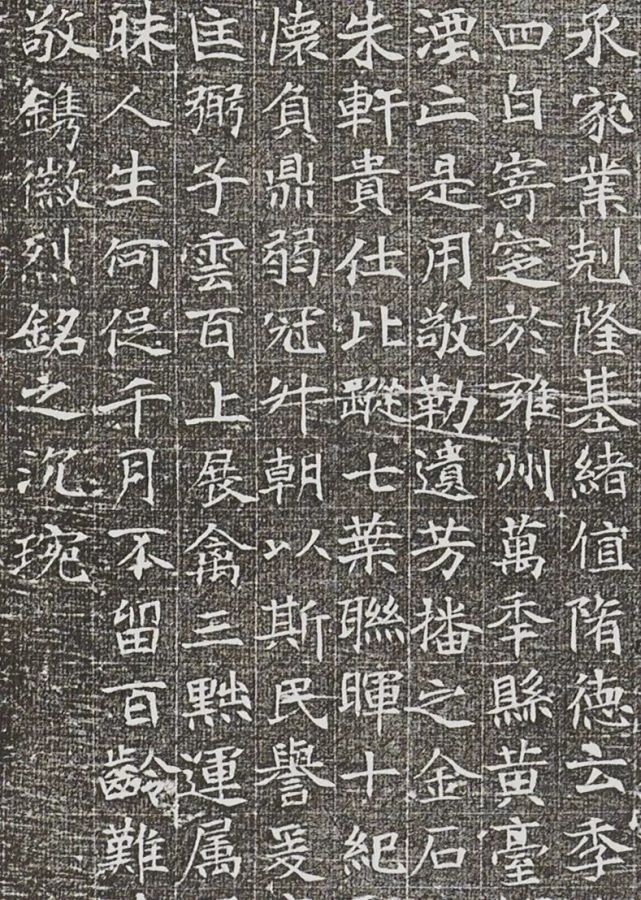 承家業剋隆基緒值隋德云季
四白寄窆於雍州萬年縣黃臺
湮亡是用敬勒遺芳播之金石
朱軒貴仕比蹤七葉聯暉十紀
懷負鼎弱冠升朝以斯民譽爰
匡弼子雲百上展禽三黜運属
昧人生何促千月不留百齡難
敬鐫徽烈銘之沉琬